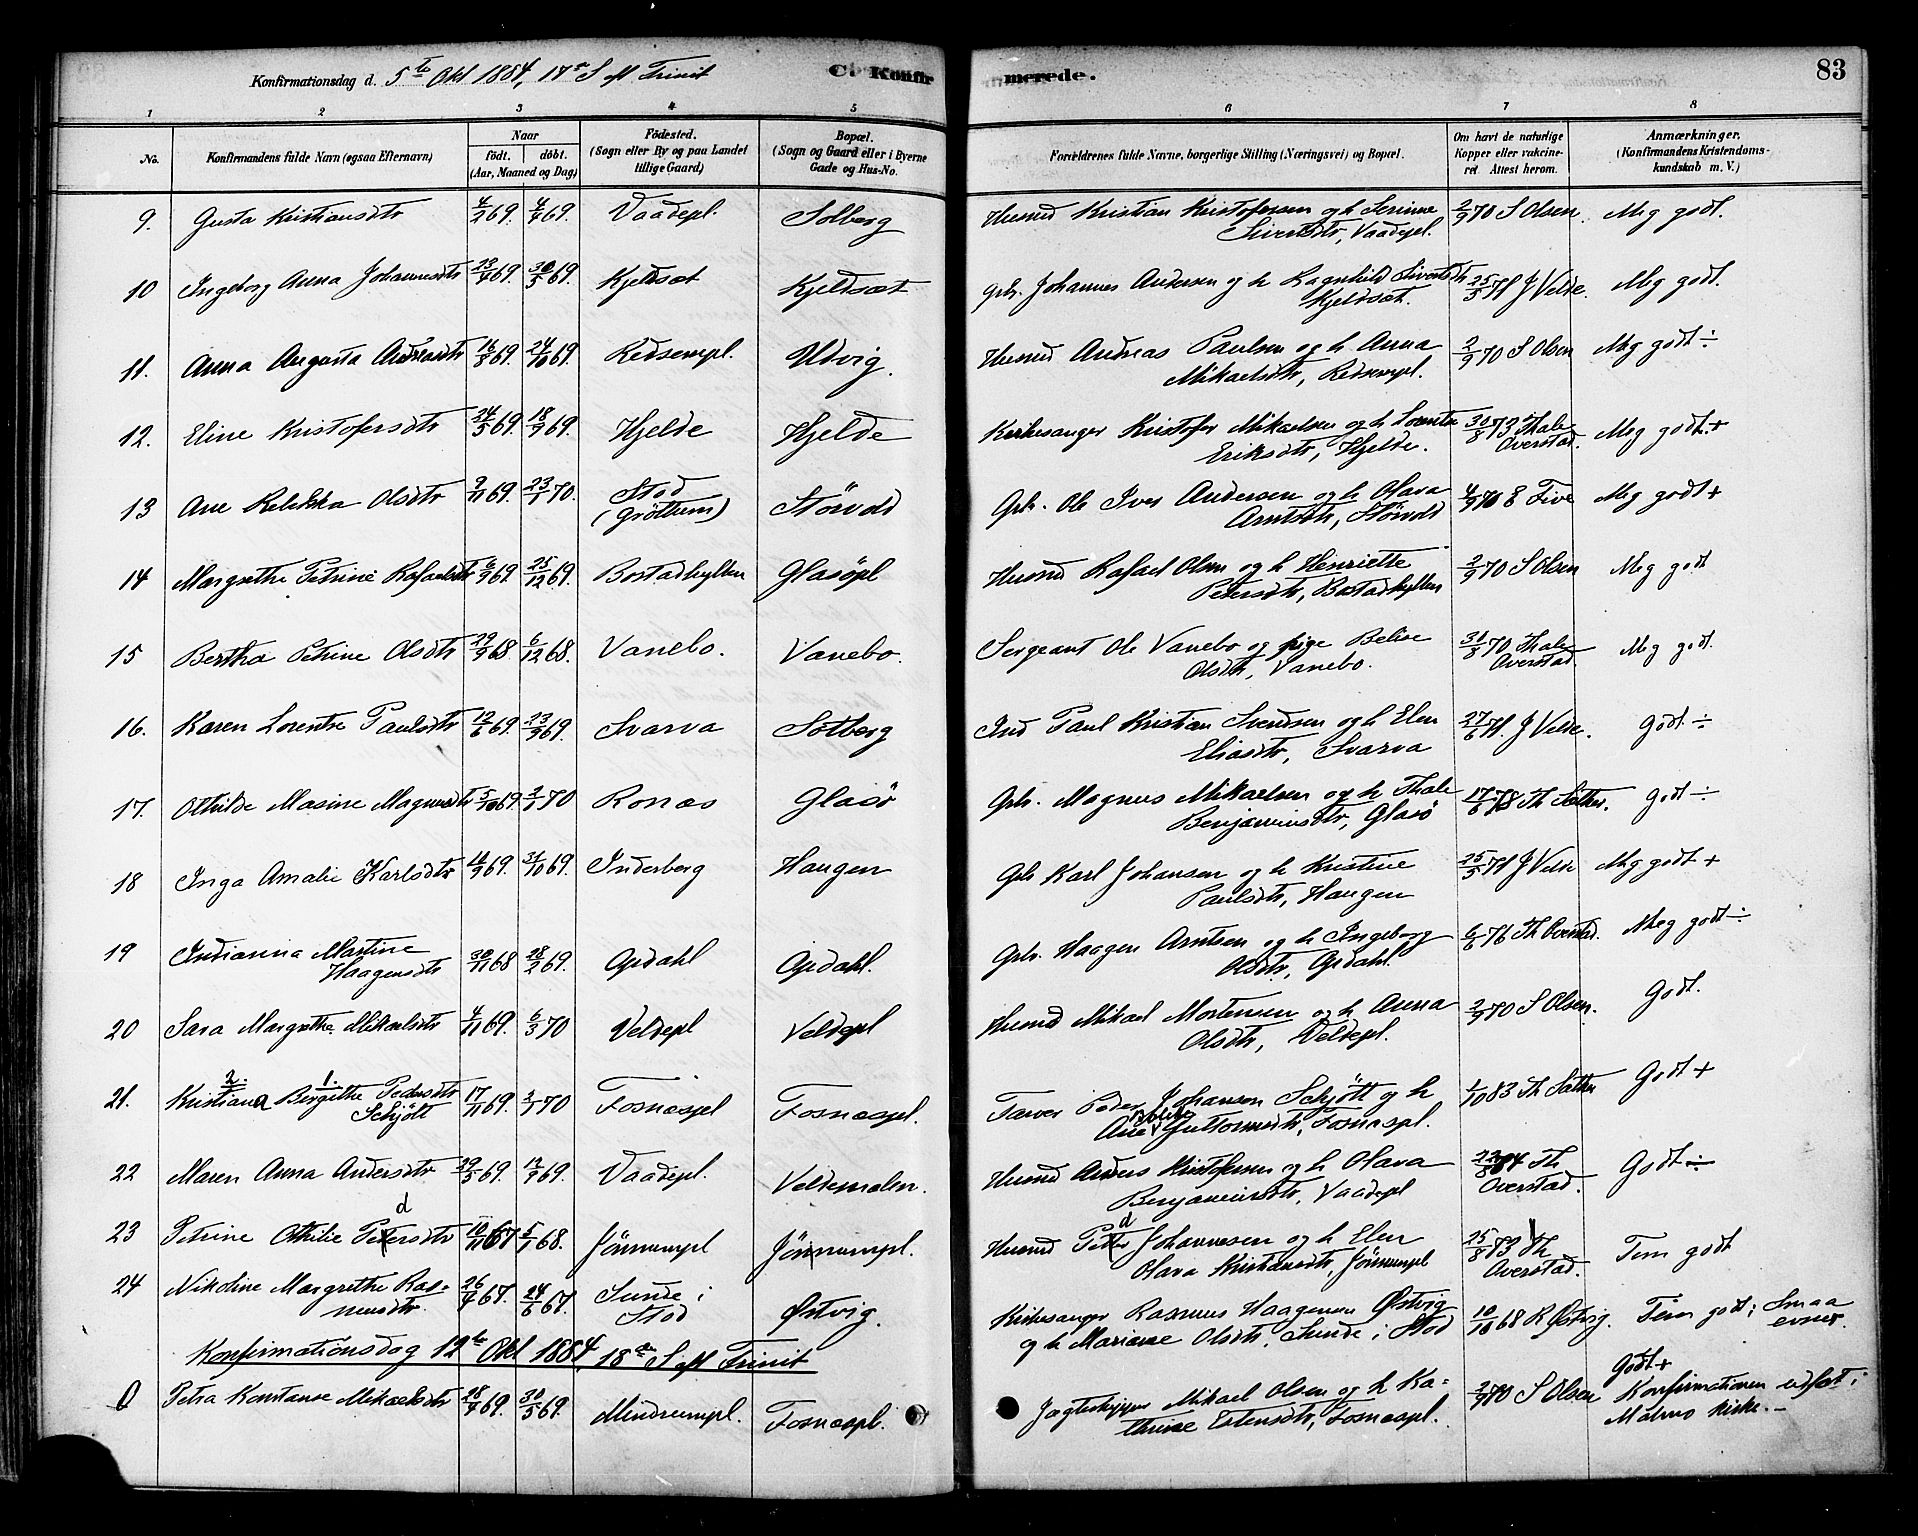 Konfirmationsdag d. 5te Okt 1884, 17de S. eft Trinit C. Konfirmerede. 83
1 2 3 4 5 6 7 8
No. Konfirmandens fulde Navn (ogsaa Efternavn) Naar født. døbt. (Aar, Maaned og Dag) Fødested. (Sogn eller By og paa Landet tillige Gaard) Bopæl. (Sogn og Gaard eller i Byerne Gade og Hus-No. Forældrenes fulde Navne, borgerlige Stilling (Næringsvei) og Bopæl. Om havt de naturlige Kopper eller vakcineret. Attest herom. Anmærkninger. (Konfirmandens Kristendomskundskab m. V.)
9. Gusta Kristiansdtr 4/2 69. 4/4 69. Vaadepl. Solberg Husmd Kristian Kristofersen og h Serinne 2/9 70 S Olsen. Meg godt.
Sivertsdtr, Vaadepl.
10 Ingeborg Anna Johannesdtr 23/4 69. 30/5 69. Kjeldsæt Kjeldsæt Grbr. Johannes Andersen og h Ragnhild Sivertsdtr 25/5 71 J Velde. Meg godt.
Kjeldsæt.
11. Anna Augusta Andreasdtr 16/8 69. 24/10 69. Redsempl. Utvig. Husmd Andreas Paulsen og h. Anna 2/9 70 S Olsen Meg godt ÷
Mikaelsdtr, Redsempl.
12. Eline Kristofersdtr 24/5 69. 18/7 69. Hjelde Hjelde Kirkesanger Kristofer Mikaelsen og h Lorentse 30/8 73 Thale Overstad. Meg godt. +
Eriksdtr, Hjelde.
13 Ane Rebekka Olsdtr 9/11 69. 23/1 70. Stod (Grøttum) Størvold Grbr. Ole Iver Andersen og h Olava 4/9 70 E Five Meg godt +
Arntsdtr, Størvold
14 Margrethe Petrine Rafaelsdtr 6/9 69 25/12 69. Bostadhyllen Glasøpl Husmd Rafael Olsen og h Henriette 2/9 70 S Olsen Meg godt
Petersdtr, Bostadhyllen
15 Bertha Petrine Olsdtr 29/9 68 6/12 68. Vanebo. Vanebo. Sergeant Ole Vanebo og pige Belise 31/8 70 Thale Overstad. Meg godt.
Olsdtr, Vanebo.
16. Karen Lorentse Paulsdtr 12/6 69. 23/9 69. Svarva Solberg Ind Paul Kristian Svendsen og h Elen 27/6 71. J Velde. Godt ÷
Eliasdtr, Svarva
17. Othilde Masine Magnusdtr 5/10 69. 2/1 70 Ronæs Glasø Grbr. Magnus Mikaelsen og h Thale 17/6 78 Th Sæther. Godt ÷
Benjaminsdtr, Glasø
18 Inga Amalie Karlsdtr 11/9 69. 31/10 69. Inderberg Haugen Grbr Karl Johansen og h Kristine 25/5 71 J Velde Meg godt +
Paulsdtr, Haugen
19 Indianna Martine 30/11 68 28/2 69. Opdahl Opdahl. Grbr. Haagen Arntsen og h Ingeborg 6/6 76 Th Overstad. Meg godt ÷
Haagensdtr Olsdtr, Opdahl.
20 Sara Margrethe Mikaelsdtr 4/11 69. 6/3 70 Veldepl Veldepl Husmd Mikael Mortensen og h Anna 2/9 70 S Olsen. Godt.
Olsdtr, Veldepl.
2. 1.
21. Kristiana Birgitte Pedersdtr 17/11 69. 2/1 70 Fosnæspl Fosnæspl. Farver Peder Johansen Schjøtt og h 1/10 83 Th Sæther Godt +
Schjøtt Ane Guttormsdtr, Fosnæspl.
22 Maren Anna Andersdtr 29/5 69. 12/9 69. Vaadepl. Veldemalen. Husmd Anders Kristofersen og h Olava 22/8 84 Th Overstad. Godt ÷
Benjaminsdtr, Vaadepl
23 Petrine Othilie Pedersdtr 10/11 67 5/1 68. Jønnumpl Jønnumpl. Husmd Peder Johannesen og h Elen 25/8 73 Th Overstad. Tem godt
Olava Kristiansdtr, Jønnumpl
24 Nikoline Margrethe Ras- 26/4 67. 24/6 67. Sunde i Stod Østvig. Kirkesanger Rasmus Haagensen Østvig 10/10 68 R Østvig. Tem godt; Smaa evner.
musdtr. og h Marianne Olsdtr. Sunde i Stod
Konfirmationsdag 12te Okt 1884, 18de S. eft Trinit
0 Petra Konstanse Mikaelsdtr 28/4 69. 30/5 69. Mindrumpl. Fosnæspl. Jægteskipper Mikael Olsen og h Ka- 2/9 70 S Olsen Godt +
thrine Estensdtr, Fosnæspl. Konfirmationen udført i
Malmo Kirke. –